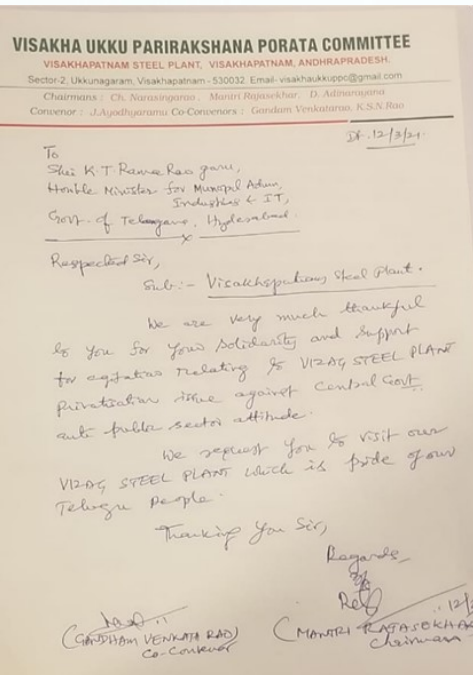 VISAKHA UKKU PARIRAKSHANA PORATA COMMITTEE
VISAKHAPATNAM STEEL PLANT, VISAKHAPATNAM, ANDHRAPRADESH.
Sector-2, Ukkunagaram, Visakhapatnam - 530032. Email- visakhaukkuppc@gmail.com
Chairmans : Ch. Narasingarao, Mantri Rajasekhar, D. Adinarayana
Convenor : J.Ayodhyaramu Co-Convenors : Gandam Venkatarao, K.S.N.Rao
Dt. 12/3/21.
To
Shri K.T. Rama Rao garu,
Honble Minister for Municipal Admn,
Industries & IT,
Govt. of Telangana, Hyderabad.
Respected Sir,
Sub:- Visakhapatnam Steel Plant.
We are very much thankful
to you for your solidarity and support
for agitation relating to VIZAG STEEL PLANT
privatisation issue against Central Govt.
anti public sector attitude.
We request you to visit our
VIZAG STEEL PLANT which is pride of our
Telugu People.
Thanking You Sir,
Regards,
(GANDHAM VENKATA RAO)
Co-Convenor
12/3
(MANTRI RAJASEKHAR
Chairman